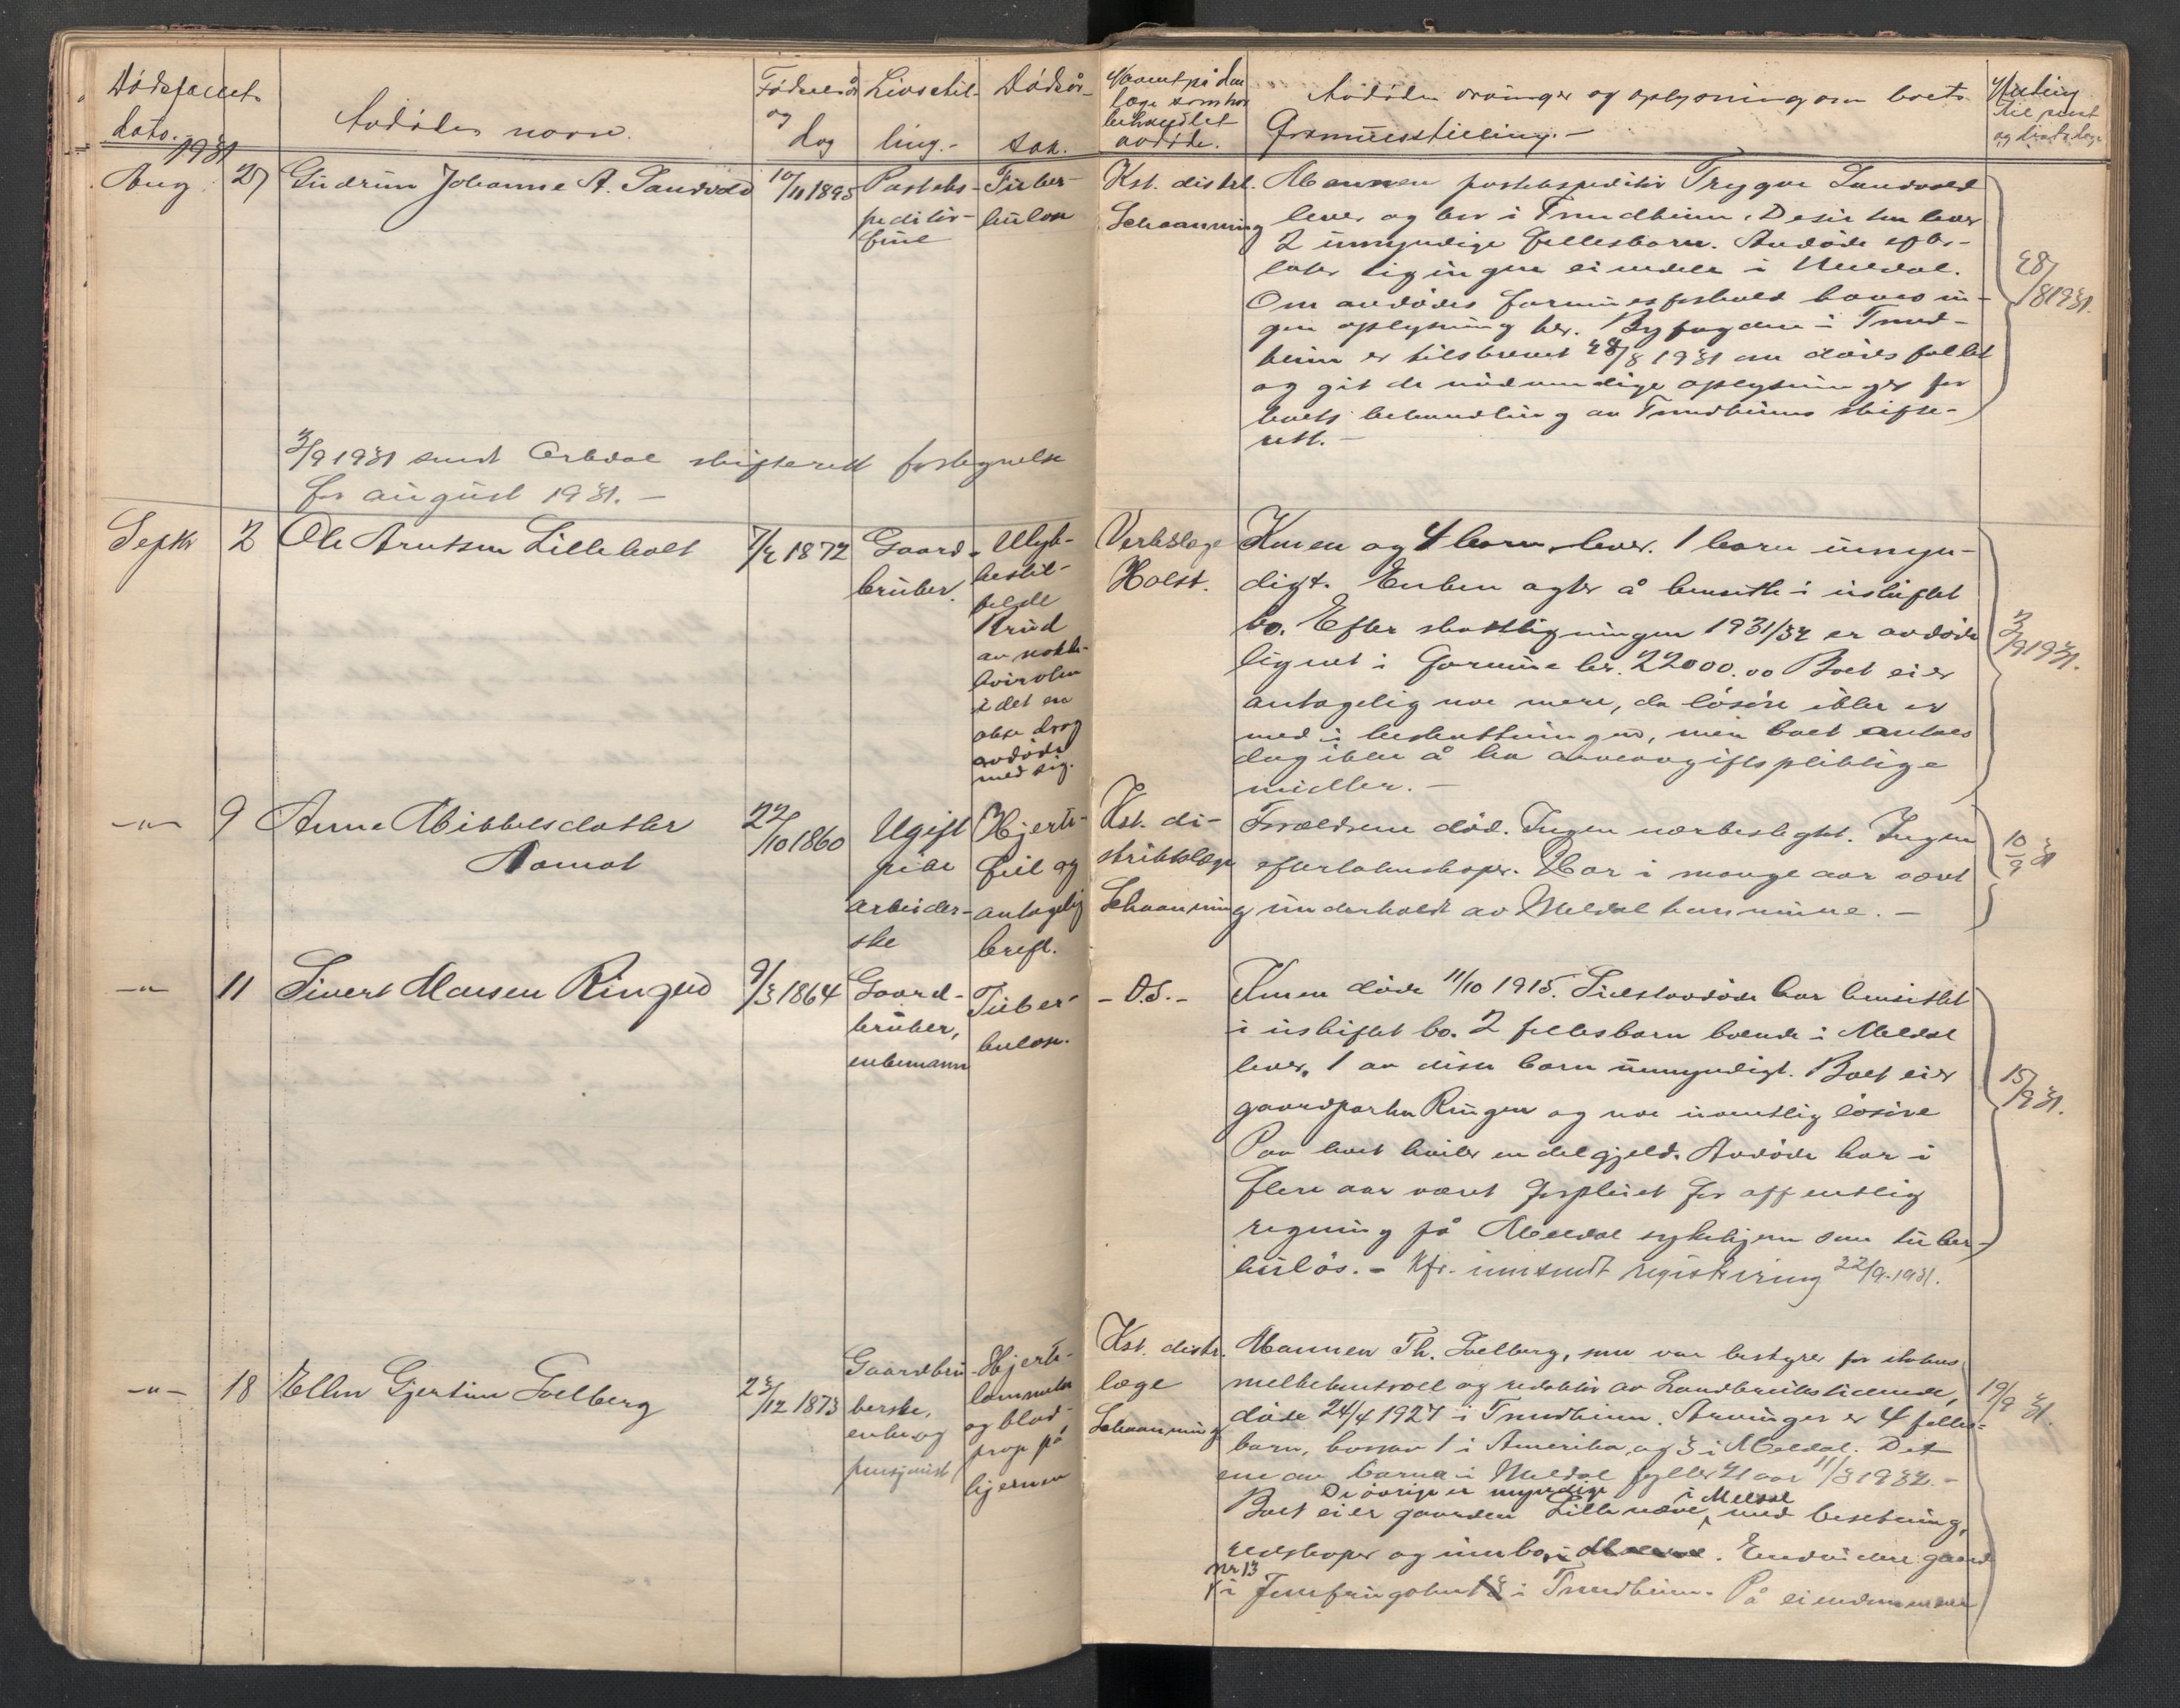 Dødsfallets
dato.
Avdødes navn.
Fødselsår
og
dag
Livsstil-
ling.-
Dødsår-
sak.
Navnet på den
læge som har
behandlet
avdøde.
Avdødes arvinger og oplysning om boets
formuesstilling.-
Melding
til
og
1931
Aug. 27
Gudrun Johanne A. Sandvold
10/11 1895
Posteks-
peditør-
frue
Tuber-
kulose
Kst. distrl.
Schaanning
Mannen postekspeditør Trygve Sandvold
lever og bor i Trondheim. Desuten lever
2 umyndige fellesbarn. Avdøde efter-
later sig ingen eiendele i Meldal.
Om avdødes formuesforhold haves in-
gen oplysning her. Byfogden i Trond-
heim er tilskrevet 28/8 1931 om dødsfallet
og git de nødvendige oplysninger for
boets behandling av Trondheims skifte-
rett.-
28/8 1931.
3/9 1931 sendt Orkdal skifterett fortegnelse
for august 1931.-
Septr 2
Ole Arntsen Lilleholt
7/2 1872
Gaard-
bruker.
Ulyk-
kestil-
felde
Brud
av nakke-
hvirvlen
idet en
okse drog
avdøde
med sig.
Verkslæge
Holst.
Konen og 4 barn lever. 1 barn umyn-
digt. Enken agter å bensitte i uskiftet
bo. Efter skattligningen 1931/32 er avdøde
lignet i formue kr. 22000.00 Boet eier
antagelig noe mere, da løsøre ikke er
med i beskattningen, men boet antaes
dog ikke å ha arveavgiftspliktige
midler.-
3/9 1931.
-"- 9
Anne Mikkelsdatter
Aamot
22/10 1860
Ugift
pike
arbeider-
ske
Hjerte-
feil og
antagelig
kreft.
Kst. di-
striktslæge
Schaanning
Forældrene død. Ingen nærbeslegtet. Ingen
efterlatenskaper. Har i mange aar været
underholdt av Meldal kommune.-
10/9 31
-"- 11
Sivert Larsen Ringen
9/3 1864
Gaard-
bruker,
enkemann
Tuber-
kulose.
- D.S. -
Konen døde 11/10 1915. Sidstavdøde har hensittet
i uskiftet bo. 2 fellesbarn boende i Meldal
lever, 1 av disse barn umyndigt. Boet eier
gaardparten Ringen og noe uvæsentlig løsøre
Paa boet hviler en del gjeld. Avdøde har i
flere aar været forpleiet for offentlig
regning på Meldal sykehjem som tuber-
kuløs. - Kfr. innsendt registrering 22/9-1931.
15/9 31.
-"- 18
Ellen Gjertine Solberg
23/12 1873
Gaardbru-
kerske,
enke og
pensjonist
Hjerte-
lammelse
og blod-
prop på
hjernen
Kst. distr.
læge
Schaanning
Mannen Th. Solberg, som var bestyrer for statens
melkekontroll og redaktør av Landbrukstidende,
døde 24/4 1927 i Trondheim. Arvinger er 4 felles-
barn, hvorav 1 i Amerika, og 3 i Meldal. Det
ene av barna i Meldal fyller 21 aar 11/3 1932.-
De øvrige er myndige
Boet eier gaarden Lillenæve i Meldal med besetning,
redskaper og innbo. Endvidere gaard
nr 13
i Jomfrugaten i Trondheim. På eiendommene
19/9 31.